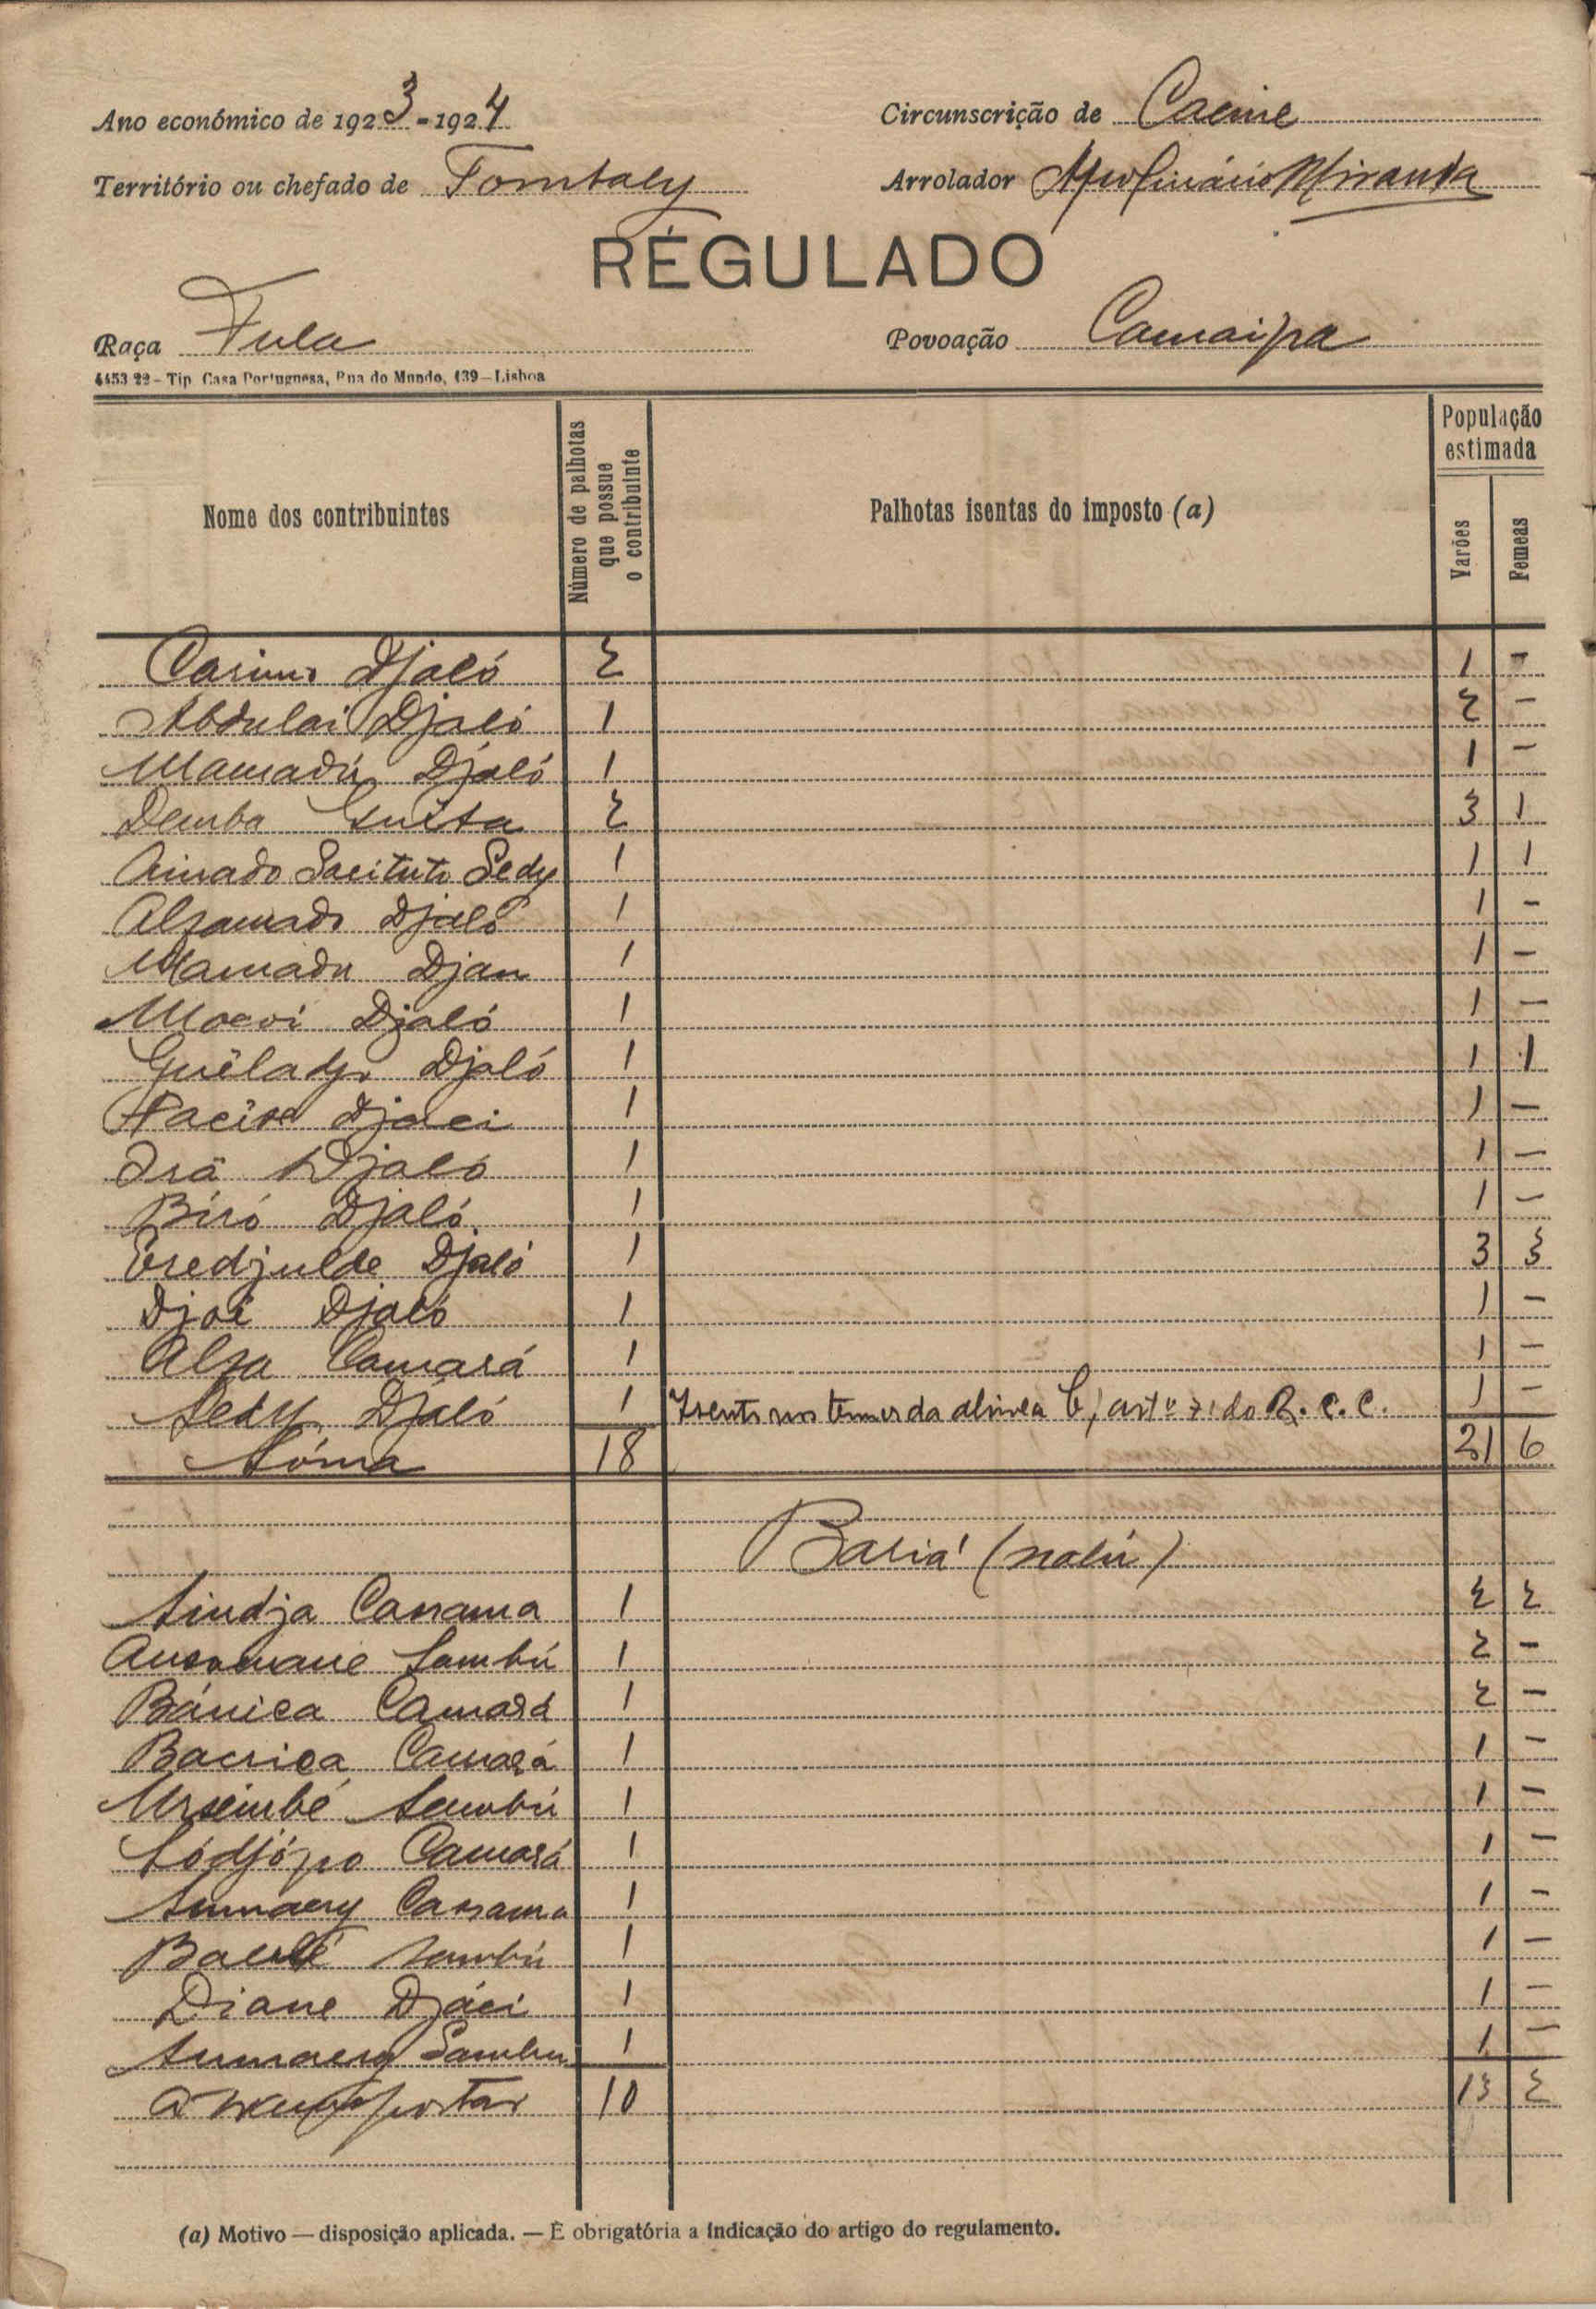 Ano económico de 1923-1924
Circunscrição de Cacine
Território ou chefado de Tombaly
Arrolador Miranda
RÉGULADO
Raça Fula
Povoação Camaipa
4453 22 – Tip. Casa Portuguesa, Rua do Mundo, 139 – Lisboa
Nome dos contribuintes
Número de palhotas que possue o contribuinte
Palhotas isentas do imposto (a)
População estimada
Varões
Femeas
Djaló 2 1 -
Abdulai Djaló 1 2 -
Mamadú Djaló 1 1 -
Demba 2 3 1
Sedy 1 1 1
Djaló 1 1 -
Mamadu Djan 1 1 -
Djaló 1 1 -
Guêladjo Djaló 1 1 1
1 1 -
Irã Djaló 1 1 -
Biró Djaló 1 1 -
Djaló 1 3 3
Djaló 1 1 -
Alfa Camará 1 1 -
Sedy Djaló 1 Isento nos termos da alinea C, artº do R. C. C. 1 -
Sôma 18 21 6
(nalú)
Sindja Cassama 1 2 2
Ansumane Sambú 1 2 -
Camará 1 2 -
Camará 1 1 -
Sambú 1 1 -
Camará 1 1 -
Cassama 1 1 -
Sambú 1 1 -
Diane 1 1 -
Sambu 1 1 -
A transportar 10 13 2
(a) Motivo — disposição aplicada. — É obrigatória a indicação do artigo do regulamento.